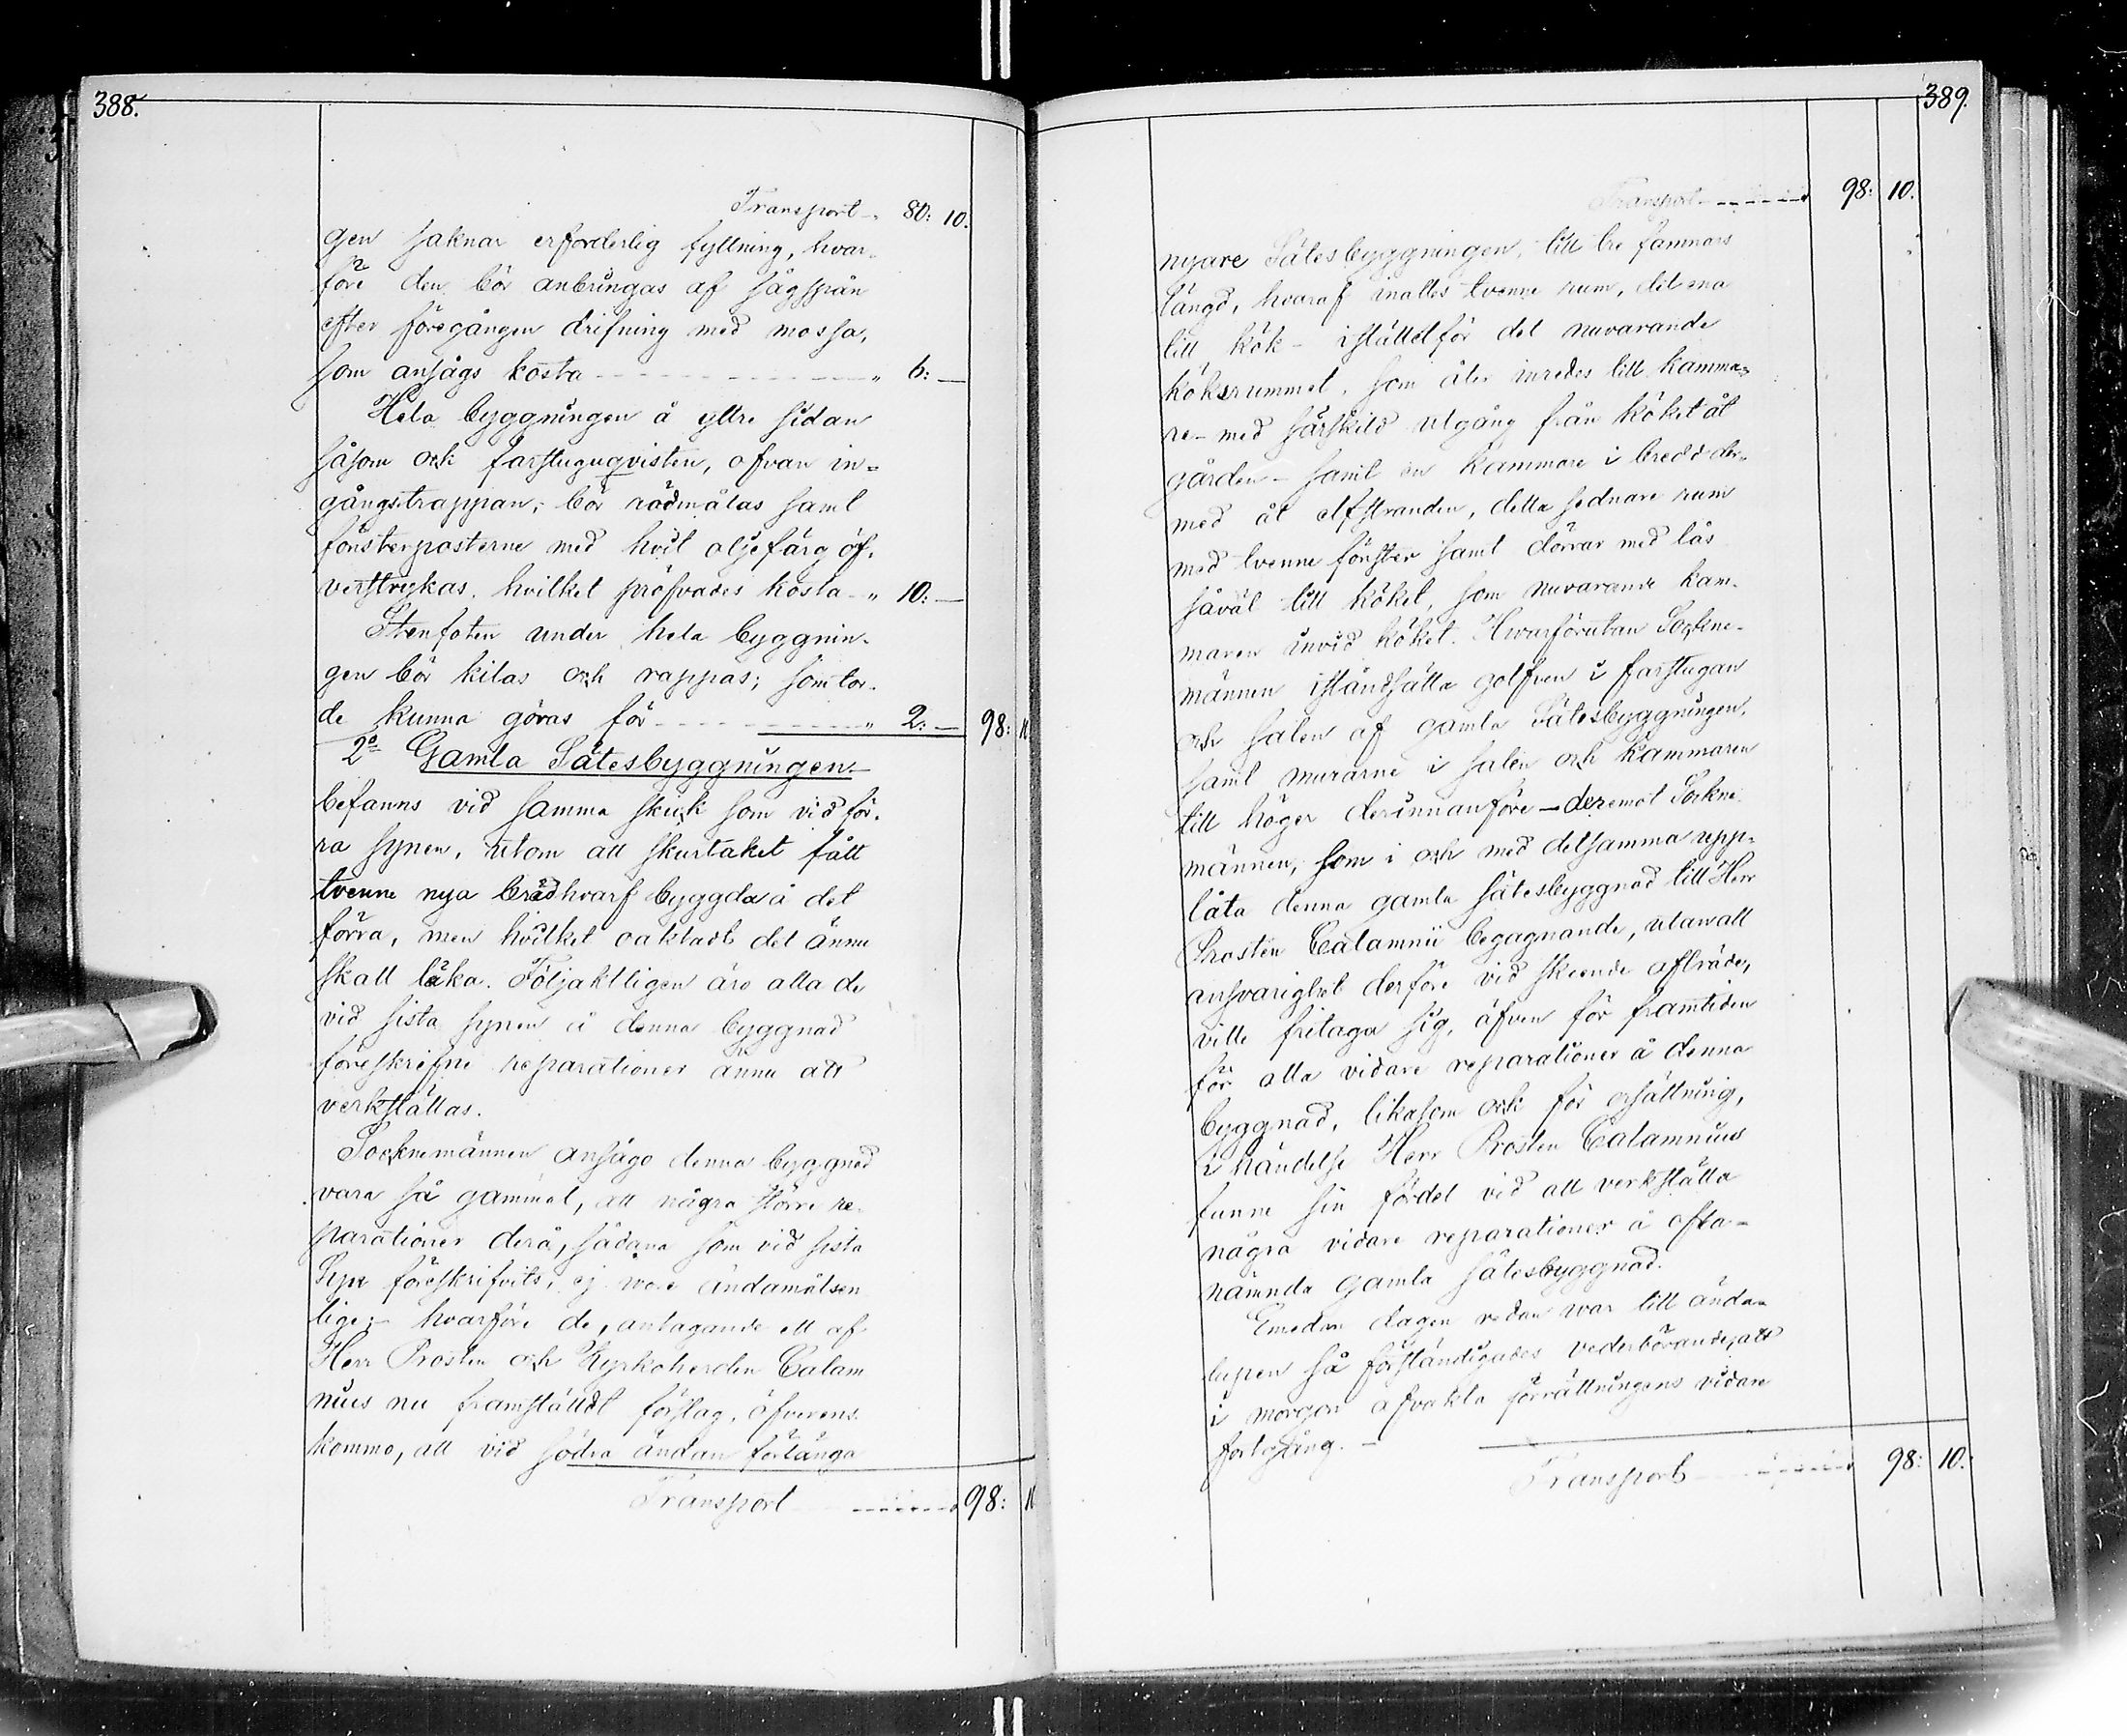 388.
Transport „ 80: 10.
gen saknar erforderlig fyllning, hvar-
före den bör anbringas af sågspån
efter föregången drifning med mossa,
som ansågs kosta „ 6: —
Hela byggningen å yttre sidan
såsom och farstuguqvisten, ofvan in=
gångstrappan, bör rödmålas samt
fönsterposterne med hvit oljefärg öf-
verstrykas, hvilket pröfvades kosta „ 10: —
Stenfoten under hela byggnin-
gen bör kilas och rappas; som tor-
de kunna göras för „ 2: — 98: 10
2o Gamla Sätesbyggningen.—
befanns vid samma skick som vid för-
ra synen, utom att skurtaket fått
tvenne nya brädhvarf byggda å det
förra, men hvilket oaktadt det ännu
skall läka. Följaktligen äro alla de
vid sista synen å denna byggnad
föreskrifne reparationer ännu att
verkställas.
Socknemännen ansågo denna byggnad
vara så gammal, att några större re-
parationer derå, sådana som vid sista
Syn föreskrifvits, ej wore ändamålsen
lige; — hvarföre de, antagande ett af
Herr Prosten och Kyrkoherden Calam
nius nu framstäldt förslag, öfverens-
kommo, att vid södra ändan förlänga
Transport 98: 10
389.
Transport 98: 10.
nyare Sätesbyggningen, till tre famnars
längd, hvaraf inältes tvenne rum, det ena
till kök — istället för det nuvarande
köksrummet, som åter inredes till kamma=
re — med särskild utgång från köket åt
gården — samt en kammare i bredd der-
med åt elfstranden, detta sednare rum
med tvenne fönster samt dörrar med lås
såväl till köket, som nuvarande kam-
maren invid köket. Hwarförutan Sockne-
männen iståndsätta golfven i farstugan
och salen af gamla Sätesbyggningen,
samt murarne i salen och kammaren
till höger derinnanföre — deremot Sockne
männen, som i och med detsamma upp-
låta denna gamla sätesbyggnad till Herr
Prosten Calamnii begagnande, utan all
ansvarighet derföre vid skeende afträde,
ville fritaga sig, äfven för framtiden
för alla vidare reparationer å denna
byggnad, likasom och för ersättning,
i händelse Herr Prosten Calamnius
funne sin fördel vid att verkställa
några vidare reparationer å ofta-
nämnda gamla sätesbyggnad.
Emedan dagen redan war till ända-
lupen så förständigades vederbörande, att
i morgon afvakta förrättningens vidare
fortgång. —
Transport 98: 10.